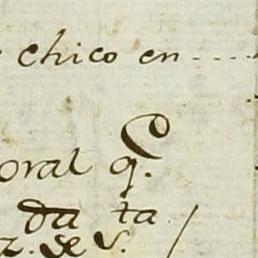 chico en....
oral q.e
da ta